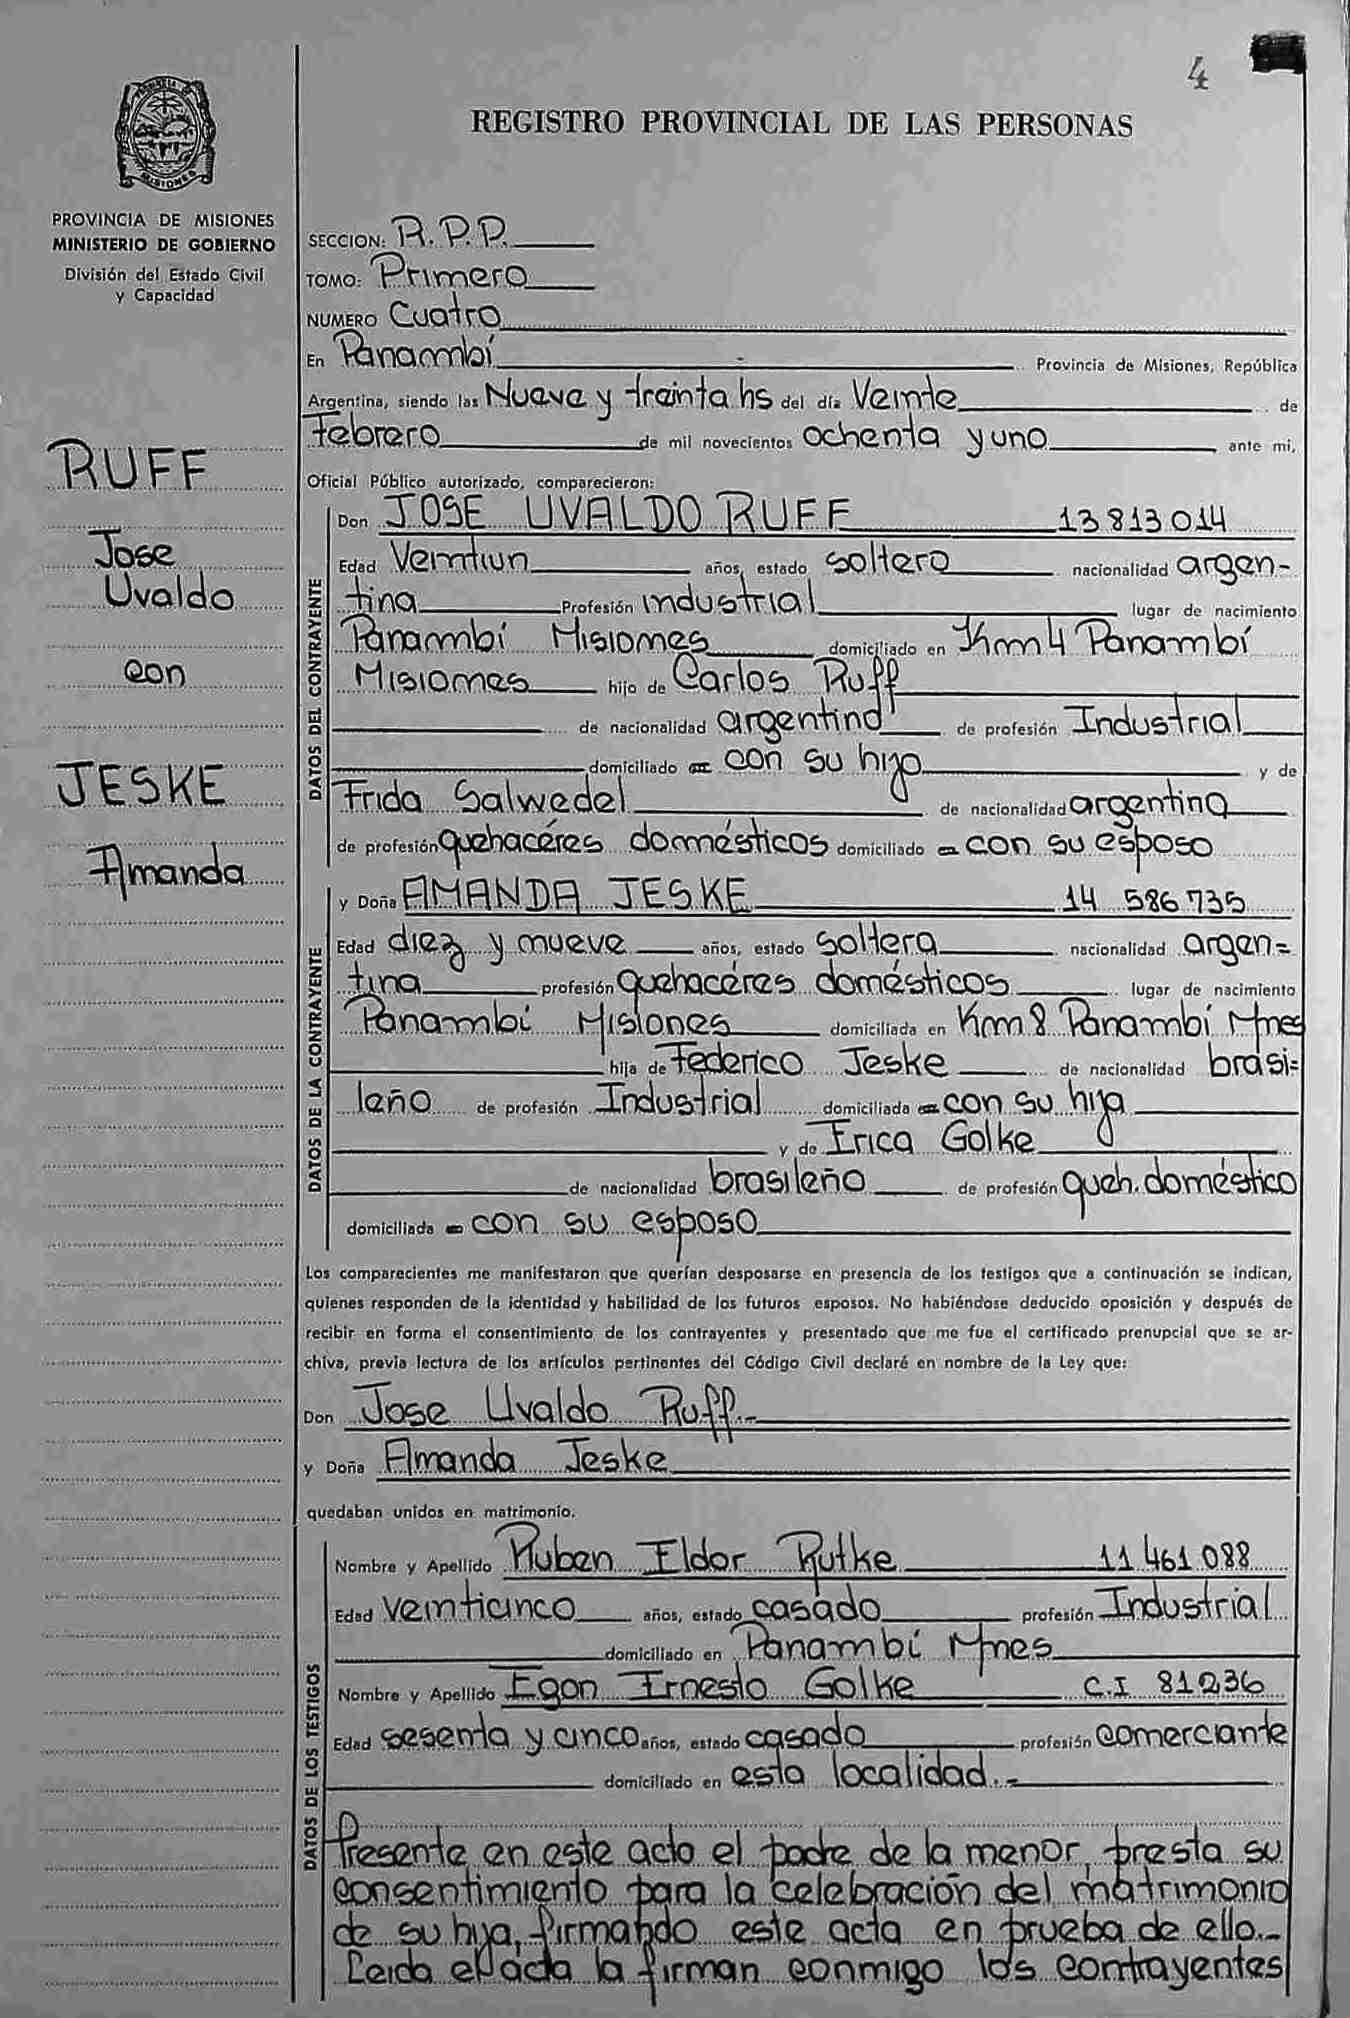 4
REGISTRO PROVINCIAL DE LAS PERSONAS
PROVINCIA DE MISIONES
MINISTERIO DE GOBIERNO
División del Estado Civil
y Capacidad
RUFF
Jose
Uvaldo
con
JESKE
Amanda
SECCION: R. P. P.
TOMO: Primero
NUMERO Cuatro
En Panambí Provincia de Misiones, República
Argentina, siendo las Nueve y treinta hs del día Veinte de
Febrero de mil novecientos ochenta y uno ante mi,
Oficial Público autorizado, comparecieron:
DATOS DEL CONTRAYENTE
Don JOSE UVALDO RUFF 13 813 014
Edad Veintiun años, estado soltero nacionalidad argen-
tina Profesión industrial lugar de nacimiento
Panambí Misiones domiciliado en Km 4 Panambí
Misiones hijo de Carlos Ruff
de nacionalidad argentino de profesión Industrial
domiciliado con su hijo y de
Frida Salwedel de nacionalidad argentina
de profesión quehacéres domésticos domiciliado con su esposo
DATOS DE LA CONTRAYENTE
y Doña AMANDA JESKE 14 586 735
Edad diez y nueve años, estado Soltera nacionalidad argen=
tina profesión quehacéres domésticos lugar de nacimiento
Panambí Misiones domiciliada en Km 8 Panambí Mnes
hija de Federico Jeske de nacionalidad brasi=
leño de profesión Industrial domiciliada con su hija
y de Erica Golke
de nacionalidad brasileño de profesión queh. doméstico
domiciliada con su esposo
Los comparecientes me manifestaron que querían desposarse en presencia de los testigos que a continuación se indican,
quienes responden de la identidad y habilidad de los futuros esposos. No habiéndose deducido oposición y después de
recibir en forma el consentimiento de los contrayentes y presentado que me fue el certificado prenupcial que se ar-
chiva, previa lectura de los artículos pertinentes del Código Civil declaré en nombre de la Ley que:
Don Jose Uvaldo Ruff.-
y Doña Amanda Jeske
quedaban unidos en matrimonio.
DATOS DE LOS TESTIGOS
Nombre y Apellido Ruben Eldor Rutke 11 461 088
Edad veinticinco años, estado casado profesión Industrial
domiciliado en Panambí Mnes
Nombre y Apellido Egon Ernesto Golke C.I 81236
Edad sesenta y cinco años, estado casado profesión comerciante
domiciliado en esta localidad.-
Presente en este acto el padre de la menor, presta su
consentimiento para la celebración del matrimonio
de su hija, firmando este acta en prueba de ello.-
Leida el acta la firman conmigo los contrayentes